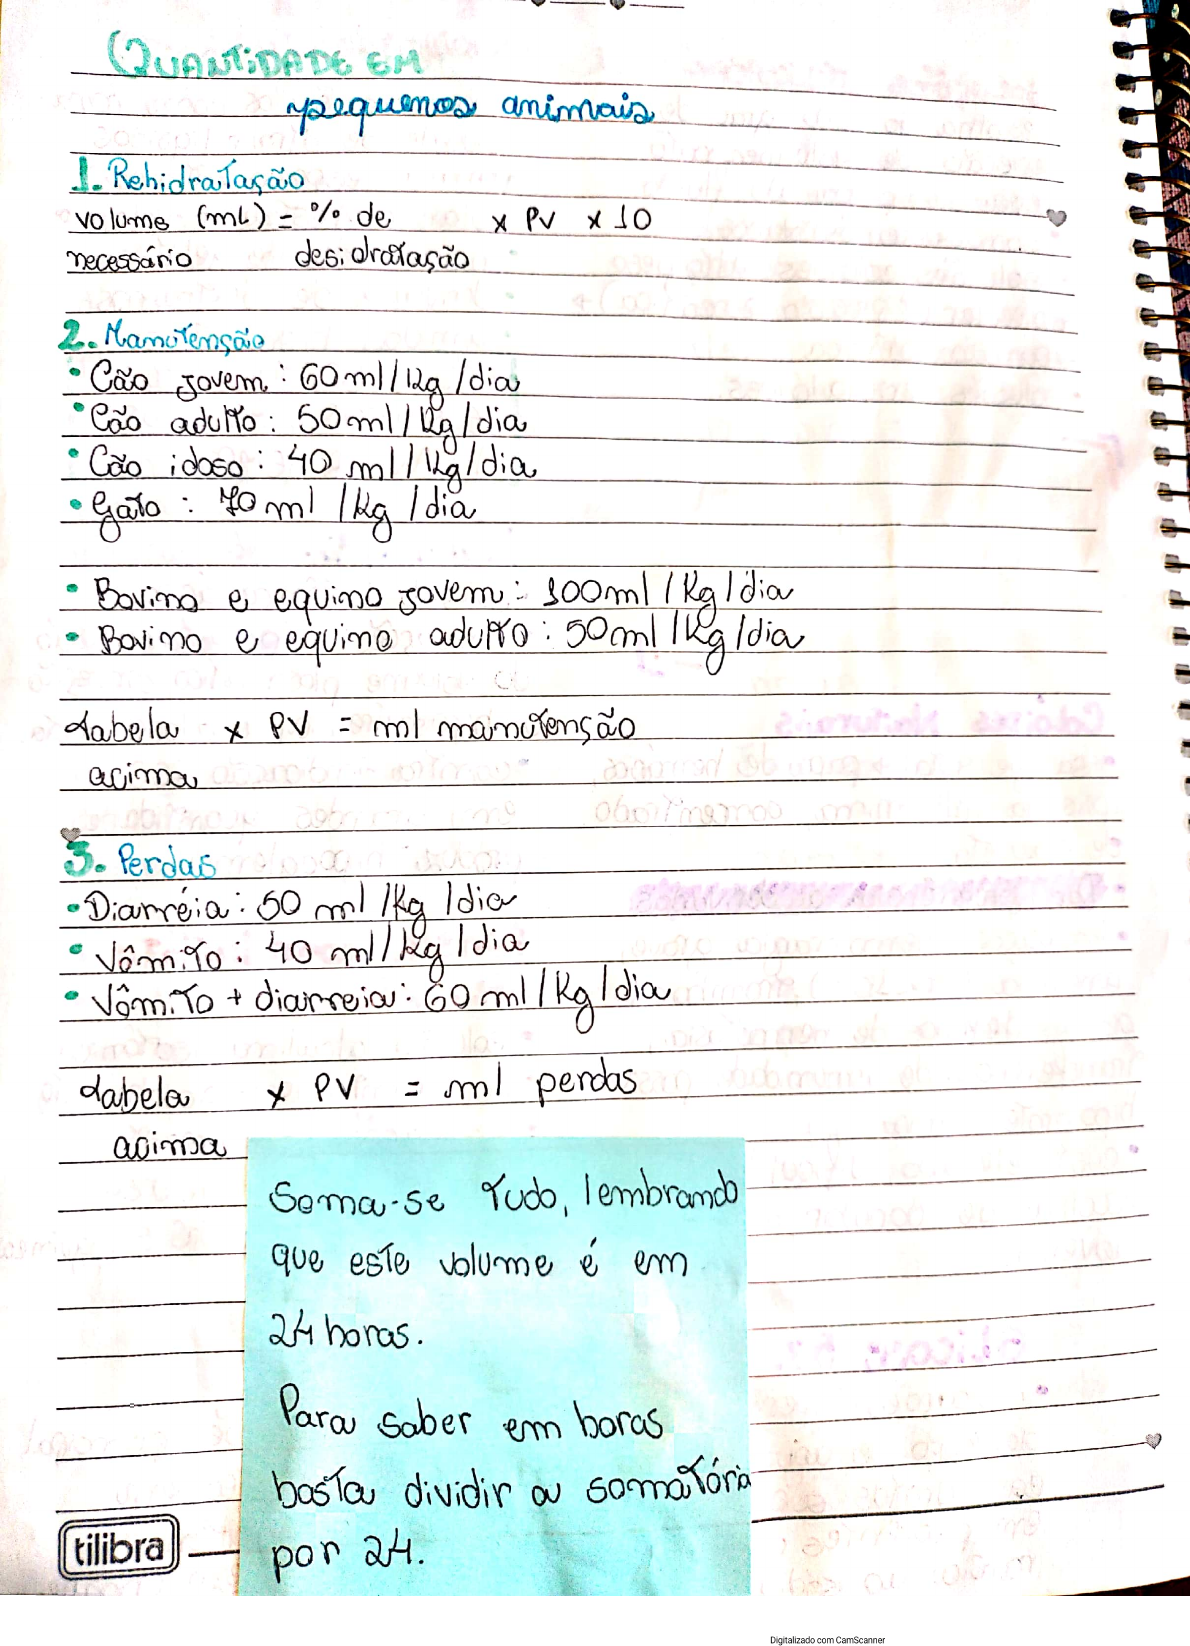 QUANTIDADE EM
pequenos animais
1. Rehidratação
volume (mL) = % de x PV x 10
necessário desidratação
2. Manutenção
• Cão jovem : 60 ml / Kg / dia
• Cão adulto : 50 ml / Kg / dia
• Cão idoso : 40 ml / Kg / dia
• Gato : 70 ml / Kg / dia
• Bovino e equino jovem : 100 ml / Kg / dia
• Bovino e equino adulto : 50 ml / Kg / dia
tabela x PV = ml manutenção
acima
3. Perdas
• Diarréia : 50 ml / Kg / dia
• Vômito : 40 ml / Kg / dia
• Vômito + diarreia : 60 ml / Kg / dia
tabela x PV = ml perdas
acima
Soma-se tudo, lembrando
que este volume é em
24 horas.
Para saber em horas
basta dividir a somatória
por 24.
tilibra
Digitalizado com CamScanner